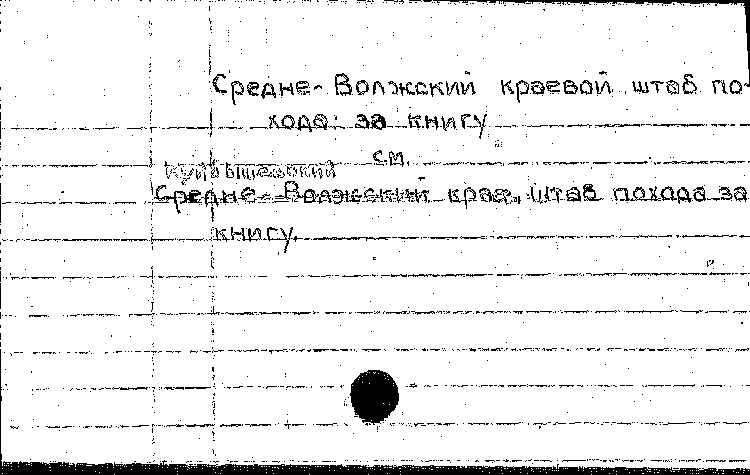 Средне-Волжский краевой штаб по-
хода за книгу
см.
Куйбышевский
Средне-Волжский край, штаб похода за
книгу.